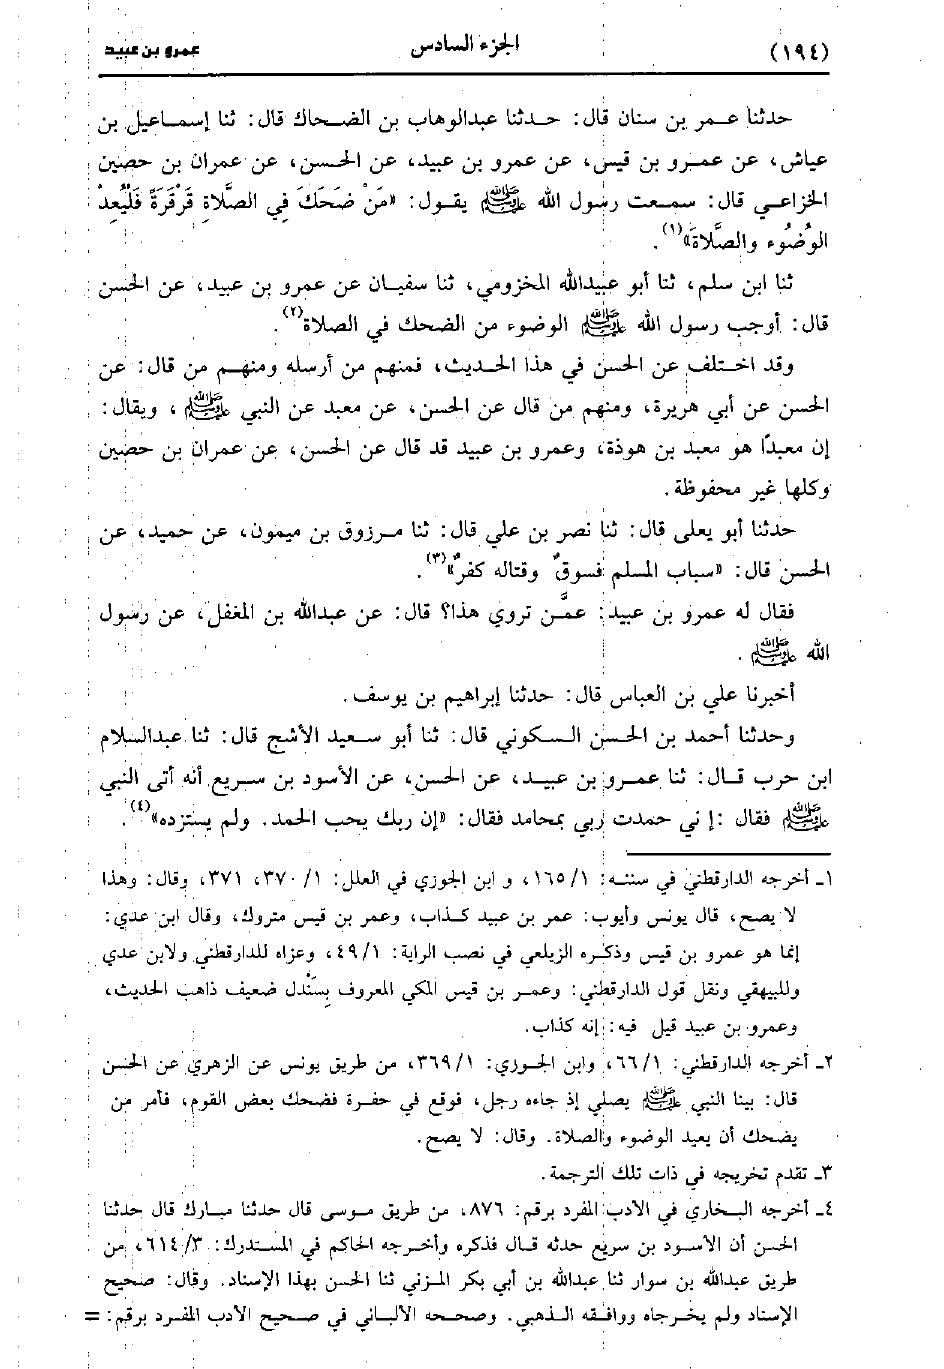 (١٩٤) الجزء السادس عمرو بن عبيد
حدثنا عمر بن سنان قال: حدثنا عبدالوهاب بن الضحاك قال: ثنا إسماعيل بن
عياش، عن عمرو بن قيس، عن عمرو بن عبيد، عن الحسن، عن عمران بن حصين
الخزاعي قال: سمعت رسول الله ﷺ يقول: «مَنْ ضَحَكَ فِي الصَّلَاةِ قَرْقَرَةً فَلْيُعِدْ
الوُضُوء والصَّلَاةَ»(١).
ثنا ابن سلم، ثنا أبو عبيدالله المخزومي، ثنا سفيان عن عمرو بن عبيد، عن الحسن
قال: أوجب رسول الله ﷺ الوضوء من الضحك في الصلاة(٢).
وقد اختلف عن الحسن في هذا الحديث، فمنهم من أرسله ومنهم من قال: عن
الحسن عن أبي هريرة، ومنهم من قال عن الحسن، عن معبد عن النبي ﷺ، ويقال:
إن معبدًا هو معبد بن هوذة، وعمرو بن عبيد قد قال عن الحسن، عن عمران بن حصين
وكلها غير محفوظة.
حدثنا أبو يعلى قال: ثنا نصر بن علي قال: ثنا مرزوق بن ميمون، عن حميد، عن
الحسن قال: «سباب المسلم فسوقٌ وقتاله كفرٌ»(٣).
فقال له عمرو بن عبيد: عمَّن تروي هذا؟ قال: عن عبدالله بن المغفل، عن رسول
الله ﷺ.
أخبرنا علي بن العباس قال: حدثنا إبراهيم بن يوسف.
وحدثنا أحمد بن الحسن السكوني قال: ثنا أبو سعيد الأشج قال: ثنا عبدالسلام
ابن حرب قال: ثنا عمرو بن عبيد، عن الحسن، عن الأسود بن سريع أنه أتى النبي
ﷺ فقال :إني حمدت ربي بمحامد فقال: «إن ربك يحب الحمد. ولم يستزده»(٤).
١ـ أخرجه الدارقطني في سننه: ١/ ١٦٥، و ابن الجوزي في العلل: ١/ ٣٧٠، ٣٧١، وقال: وهذا
لا يصح، قال يونس وأيوب: عمر بن عبيد كذاب، وعمر بن قيس متروك، وقال ابن عدي:
إنما هو عمرو بن قيس وذكره الزيلعي في نصب الراية: ١/ ٤٩، وعزاه للدارقطني ولابن عدي
وللبيهقي ونقل قول الدارقطني: وعمر بن قيس المكي المعروف بسَنْدل ضعيف ذاهب الحديث،
وعمرو بن عبيد قيل فيه: إنه كذاب.
٢ـ أخرجه الدارقطني: ١/ ٦٦، وابن الجوزي: ١/ ٣٦٩، من طريق يونس عن الزهري عن الحسن
قال: بينا النبي ﷺ يصلي إذ جاءه رجل، فوقع في حفرة فضحك بعض القوم، فأمر من
يضحك أن يعيد الوضوء والصلاة. وقال: لا يصح.
٣ـ تقدم تخريجه في ذات تلك الترجمة.
٤ـ أخرجه البخاري في الأدب المفرد برقم: ٨٧٦، من طريق موسى قال حدثنا مبارك قال حدثنا
الحسن أن الأسود بن سريع حدثه قال فذكره وأخرجه الحاكم في المستدرك: ٣/ ٦١٤، من
طريق عبدالله بن سوار ثنا عبدالله بن أبي بكر المزني ثنا الحسن بهذا الإسناد. وقال: صحيح
الإسناد ولم يخرجاه ووافقه الذهبي. وصححه الألباني في صحيح الأدب المفرد برقم: =